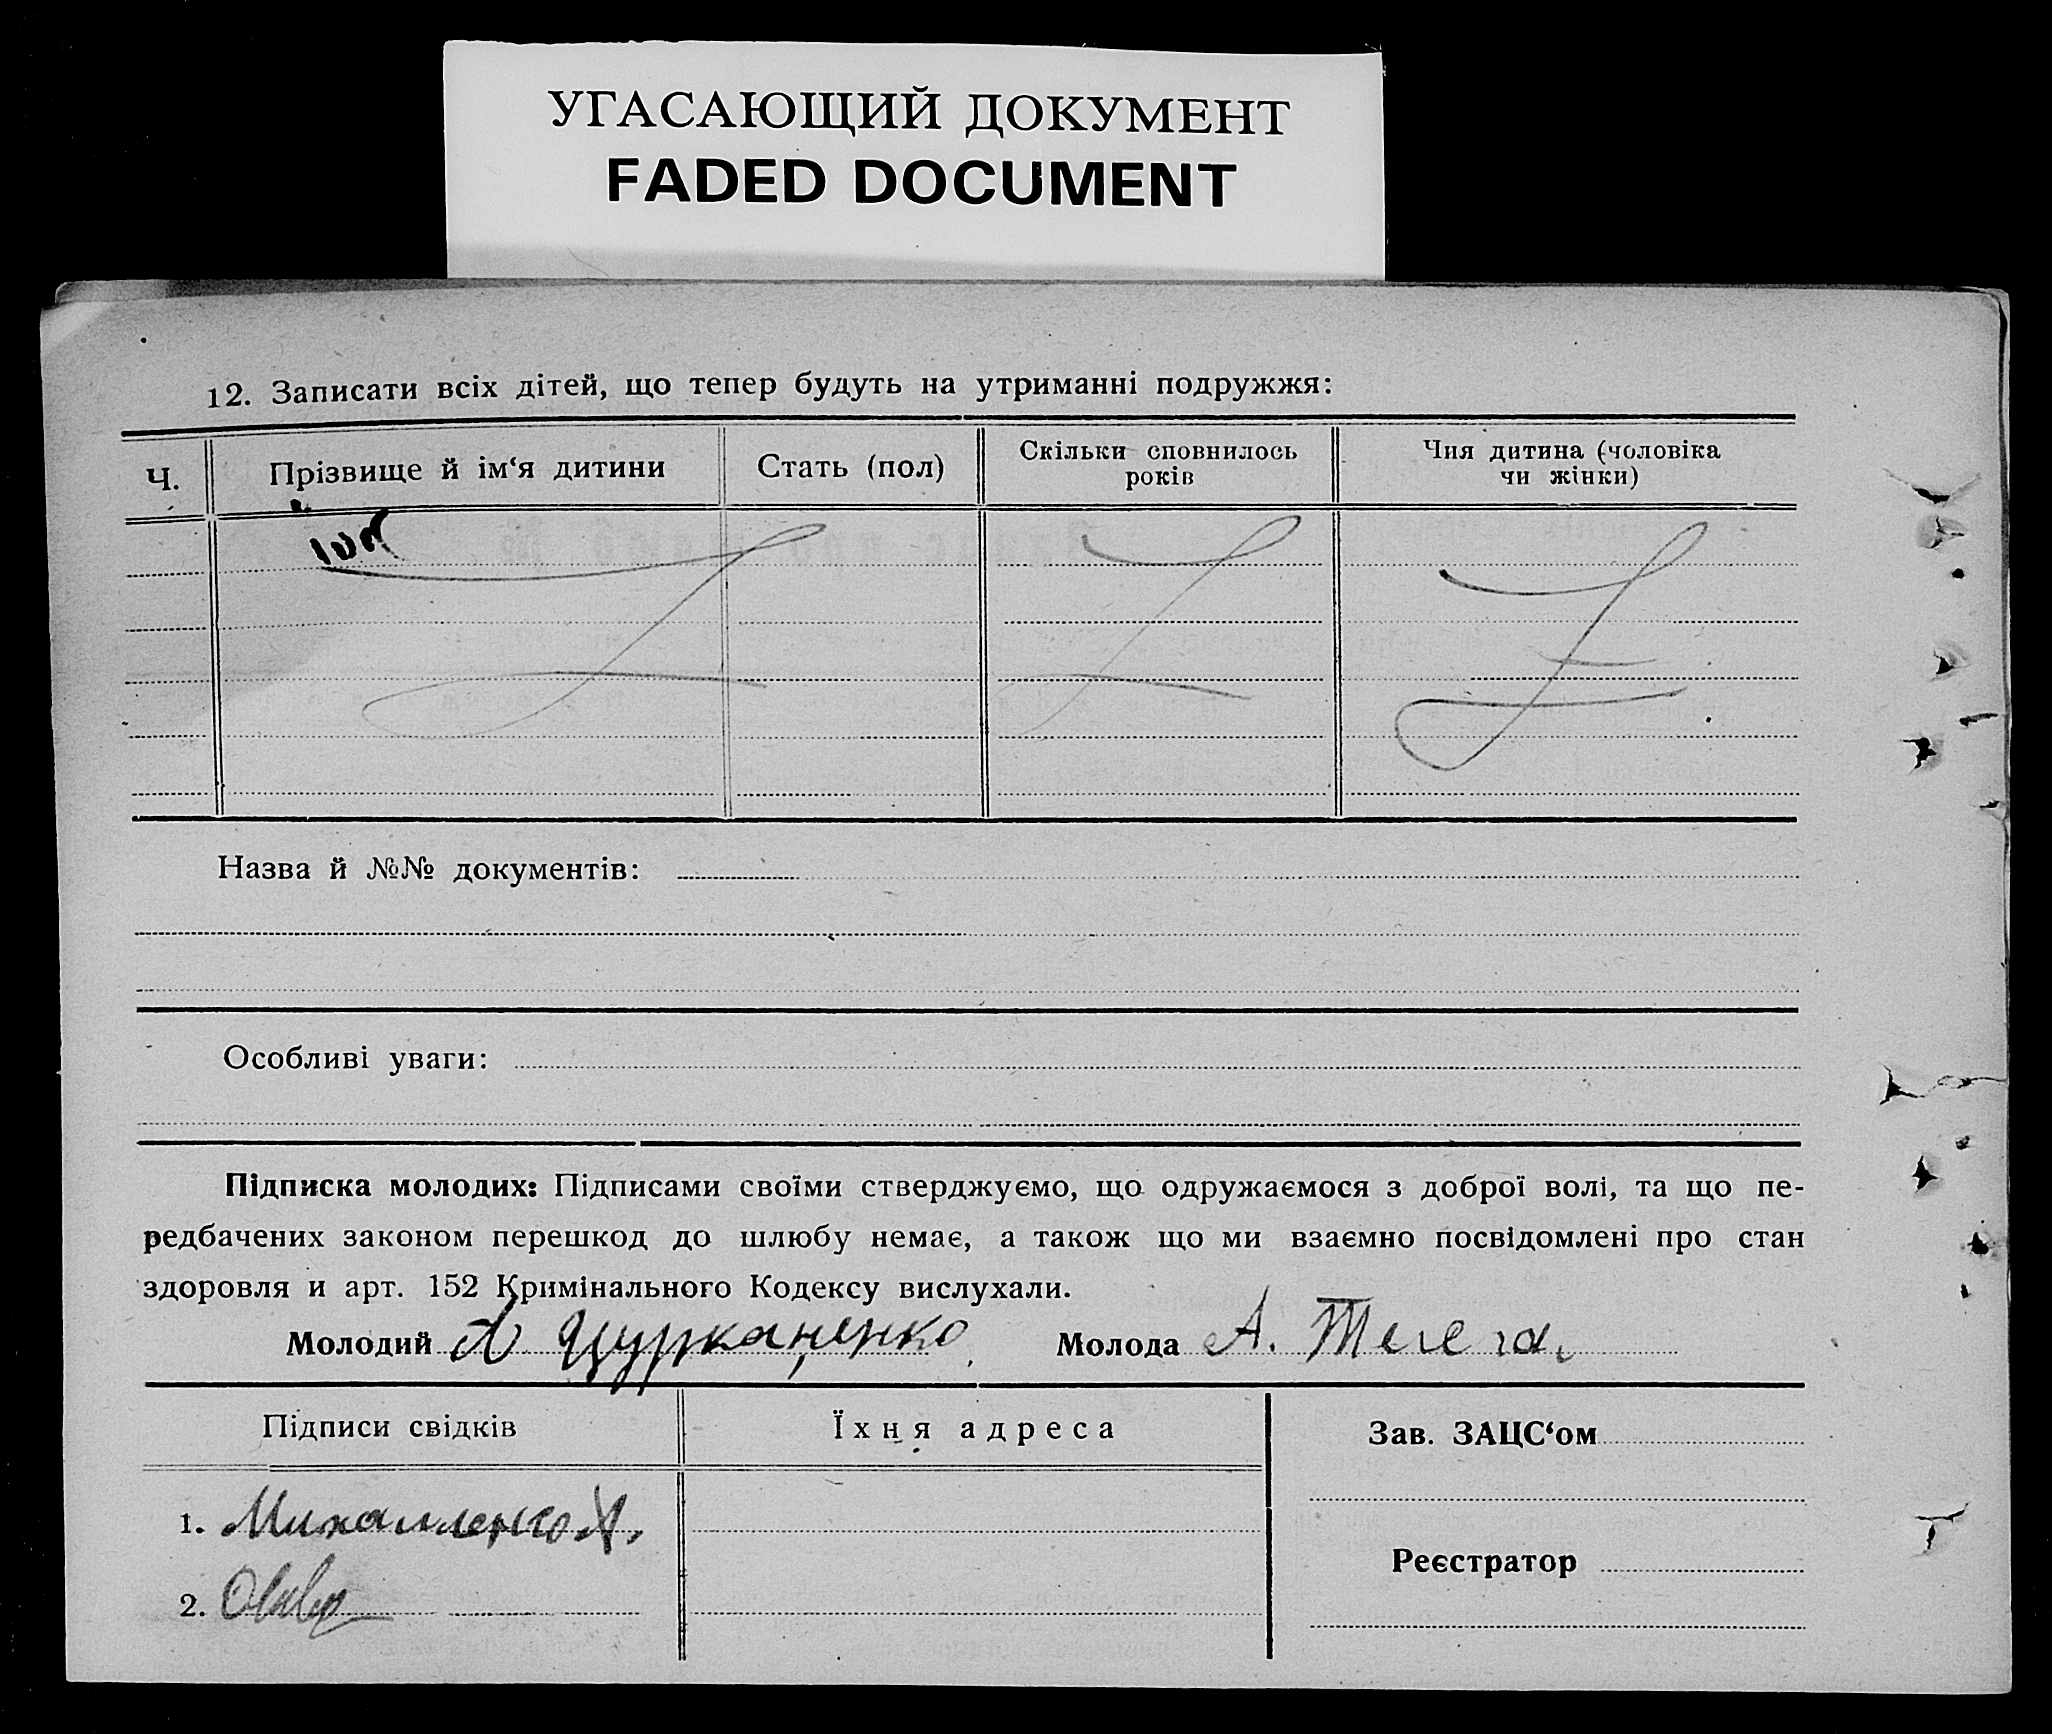 УГАСАЮЩИЙ ДОКУМЕНТ
FADED DOCUMENT
12. Записати всіх дітей, що тепер будуть на утриманні подружжя:
Ч.
Прізвище й ім‘я дитини
Стать (пол)
Скільки сповнилось
років
Чия дитина (чоловіка
чи жінки)
Назва й №№ документів:
Особливі уваги:
Підписка молодих: Підписами своїми стверджуємо, що одружаємося з доброї волі, та що пе-
редбачених законом перешкод до шлюбу немає, а також що ми взаємно посвідомлені про стан
здоровля и арт. 152 Кримінального Кодексу вислухали.
Молодий Цурканенко Молода А.
Підписи свідків
Їхня адреса
Зав. ЗАЦС‘ом
1. Михайленко
Реєстратор
2.